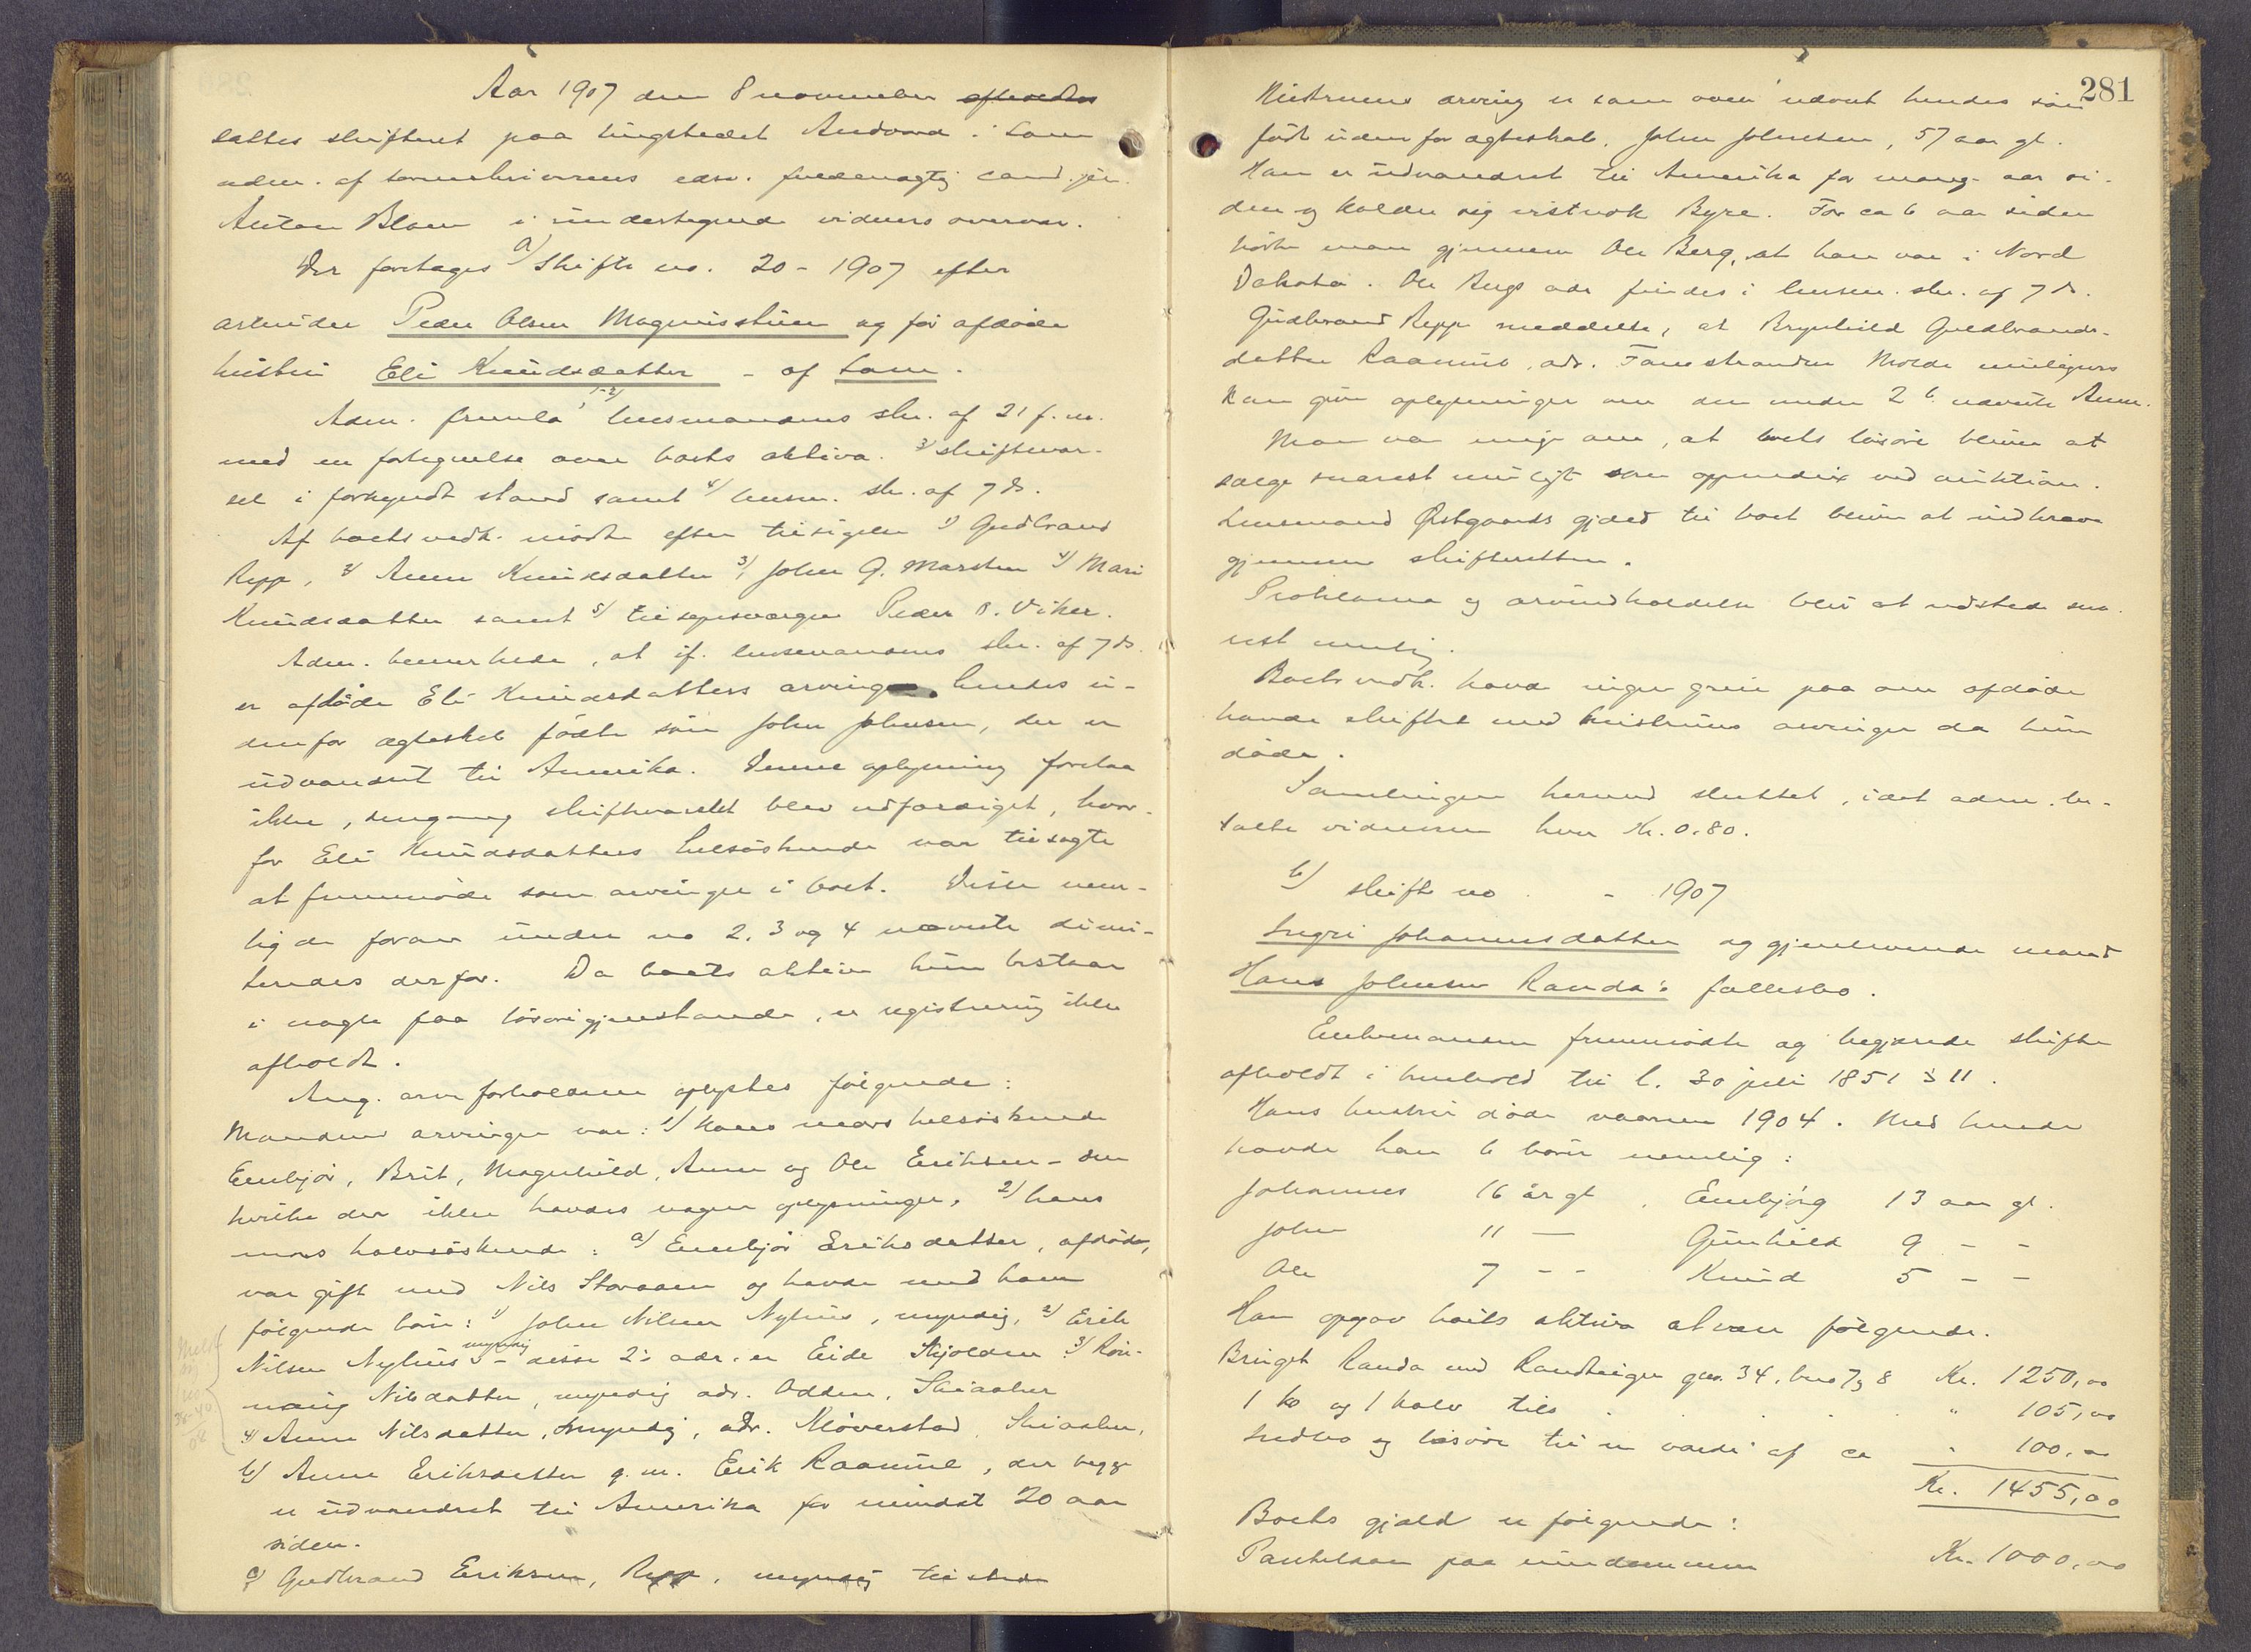 Aar 1907 den 8 november afholdtes
sattes skifteret paa tingstedet Andvord i Lom
adm. af sorenskriverens edsv. fuldmægtig cand. jur.
Anton Blom i undertegnede vidners overvær.
Der foretages a) Skifte no. 20 - 1907 efter
arbeider Peder Olsen Magnusstuen og før afdøde
hustru Eli Knudsdatter - af Lom.
Adm. fremla 1-2) lensmandens skr. af 21 f. m.
med en fortegnelse over boets aktiva. 3) skiftevar-
sel i forkyndt stand samt 4) lensm. skr. af 7 ds.
Af boets vedk. mødte efter tilsigelse 1) Gudbrand
Repp, 2) Anne Knudsdatter 3) John G. Marstein 4) Mari
Knudsdatter samt 5) tilsynsværge Peder O. Viker.
Adm. bemerkede, at if. lensmandens skr. af 7 ds.
er afdøde Eli Knudsdatters arving hendes u-
denfor ægteskab fødte søn John Johnsen, der er
udvandret til Amerika. Denne oplysning forelaa
ikke, dengang skiftevarslet blev udfærdiget, hvor-
for Eli Knudsdatters helsøskende var tilsagte
at fremmøde som arvinger i boet. Disse nem-
lig de foran under no 2, 3 og 4 nævnte dimi-
teredes derfor. Da boets aktiva kun bestaar
i nogle faa løsøregjenstande, er registrering ikke
afholdt.
Ang. arveforholdene oplystes følgende:
Mandens arvinger var: 1) hans mors helsøskende
Embjør, Brit, Magnhild, Anne og Ole Eriksen - om
hvilke der ikke havdes nogen oplysninger, 2) hans
mors halvsøskende: a) Embjør Eriksdatter, afdøde,
var gift med Nils Storaaen og havde med ham
følgende børn: 1) John Nilsen Nyhus, myndig, 2) Erik
Nilsen Nyhus myndig - disse 2's adr. er Eide Skjolden 3) Røn-
naug Nilsdatter, myndig adr. Odden, Skiaaker
4) Anne Nilsdatter, myndig, adr. Kløverstad, Skiaaker,
b) Anne Eriksdatter g. m. Erik Raamul, der begge
er udvandret til Amerika for mindst 20 aar
siden.
c) Gudbrand Eriksen, Repp, myndig tilstede
281
Hustruens arving er som oven nævnt hendes søn
født uden for ægteskab, John Johnsen, 57 aar gl.
Han er udvandret til Amerika for mange aar si-
den og kalder sig vistnok Byre. For ca 6 aar siden
hørte man gjennem Ole Berg, at han var i Nord
Dakota. Ole Bergs adr findes i lensm. skr. af 7 ds.
Gudbrand Repp meddelte, at Brynhild Gudbrands-
datter Raamul, adr. Fanestranden Molde muligens
kan give oplysninger om den under 2 b. nævnte Anne.
Man var enig om, at boets løsøre bliver at
sælge snarest muligt som appendix ved auktion.
Lensmand Østgaards gjæld til boet bliver at indkræve
gjennem skifteretten.
Proklama og arveindkaldelse bliver at udstede sna-
rest mulig.
Boets vedk. havde ingen greie paa om afdøde
havde skiftet med hustruens arvinger da hun
døde.
Samlingen hermed sluttet, idet adm. be-
talte vidnerne hver Kr. 0.80.
b) Skifte no - 1907
Ingri Johannesdatter og gjenlevende mand
Hans Johnsen Randa's fællesbo.
Enkemanden fremmødte og begjærede skifte
afholdt i henhold til l. 30 juli 1851 § 11.
Hans hustru døde vaaren 1904. Med hende
havde han 6 børn nemlig:
Johannes 16 år gl. Embjørg 13 aar gl.
John 11 — Gunhild 9 - -
Ole 7 - - Knud 5 - -
Han opgav boets aktiva at være følgende.
Bruget Randa med Randteigen gno. 34, bno 7 og 8 Kr. 1250,00
1 ko og 1 kalv tils. . . . . " 105,00
Indbo og løsøre til en værdi af ca " 100,00
Kr. 1455,00
Boets gjæld er følgende:
Pantelaan paa eiendommen Kr. 1000,00